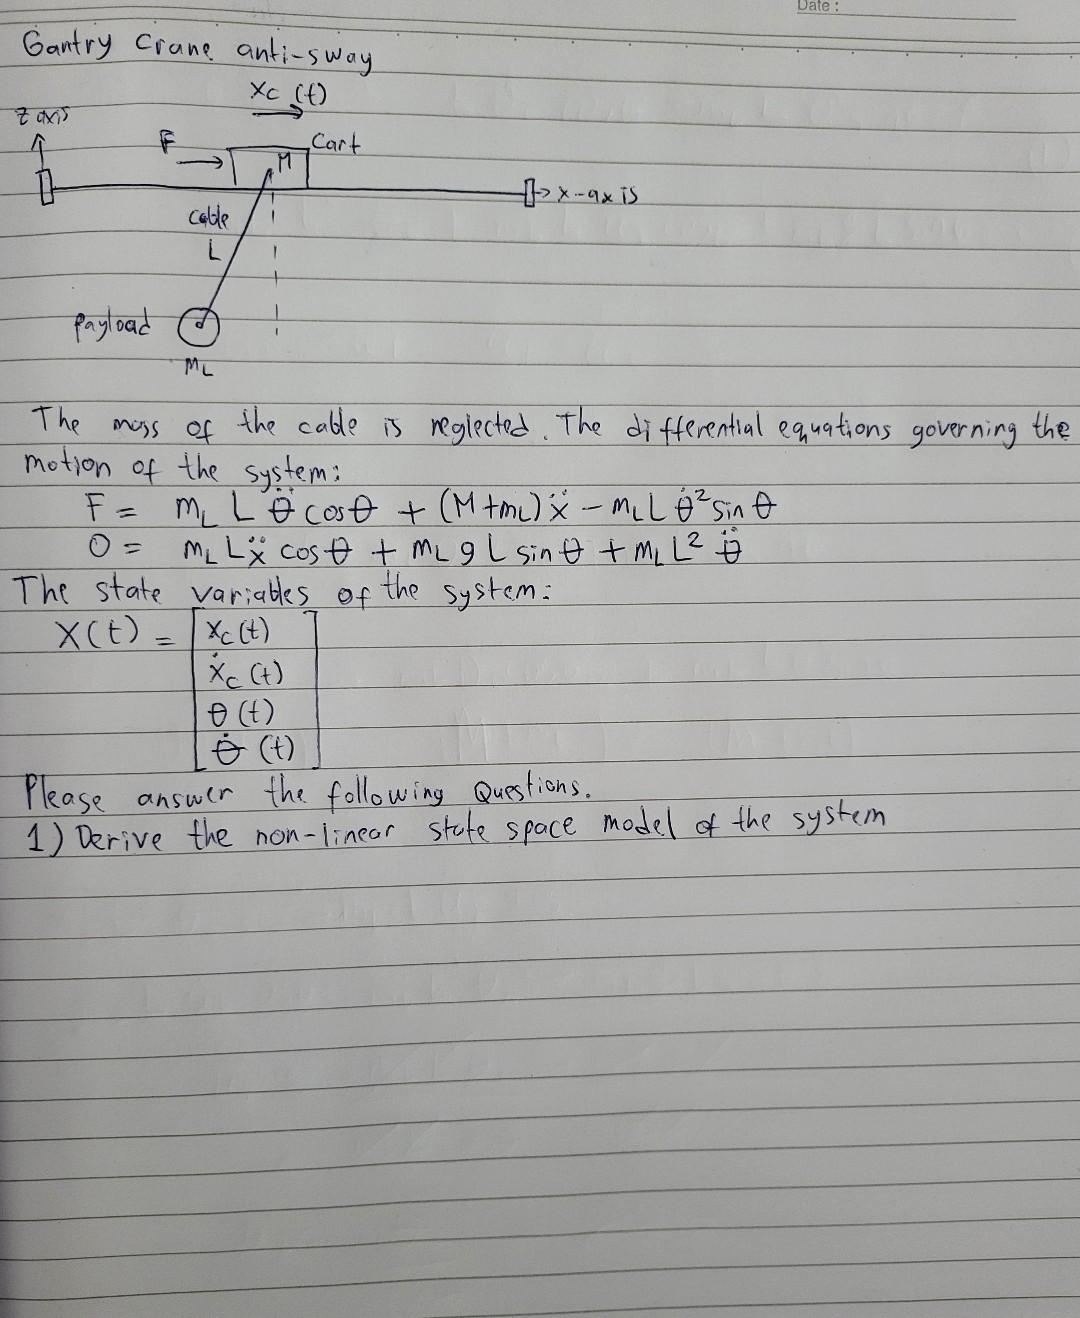 Date :
Gantry Crane anti-sway
Xc (t)
z axis
F
Cart
M
x-axis
cable
L
Payload
mL
The mass of the cable is neglected. The differential equations governing the
motion of the system:
F = mL L θ̈ cosθ + (M+mL) ẍ - mL L θ̇² sin θ
0 = mL L ẍ cos θ + mL g L sin θ + mL L² θ̈
The state variables of the system:
X(t) = [ xc (t)
ẋc (t)
θ (t)
θ̇ (t) ]
Please answer the following Questions.
1) Derive the non-linear state space model of the system